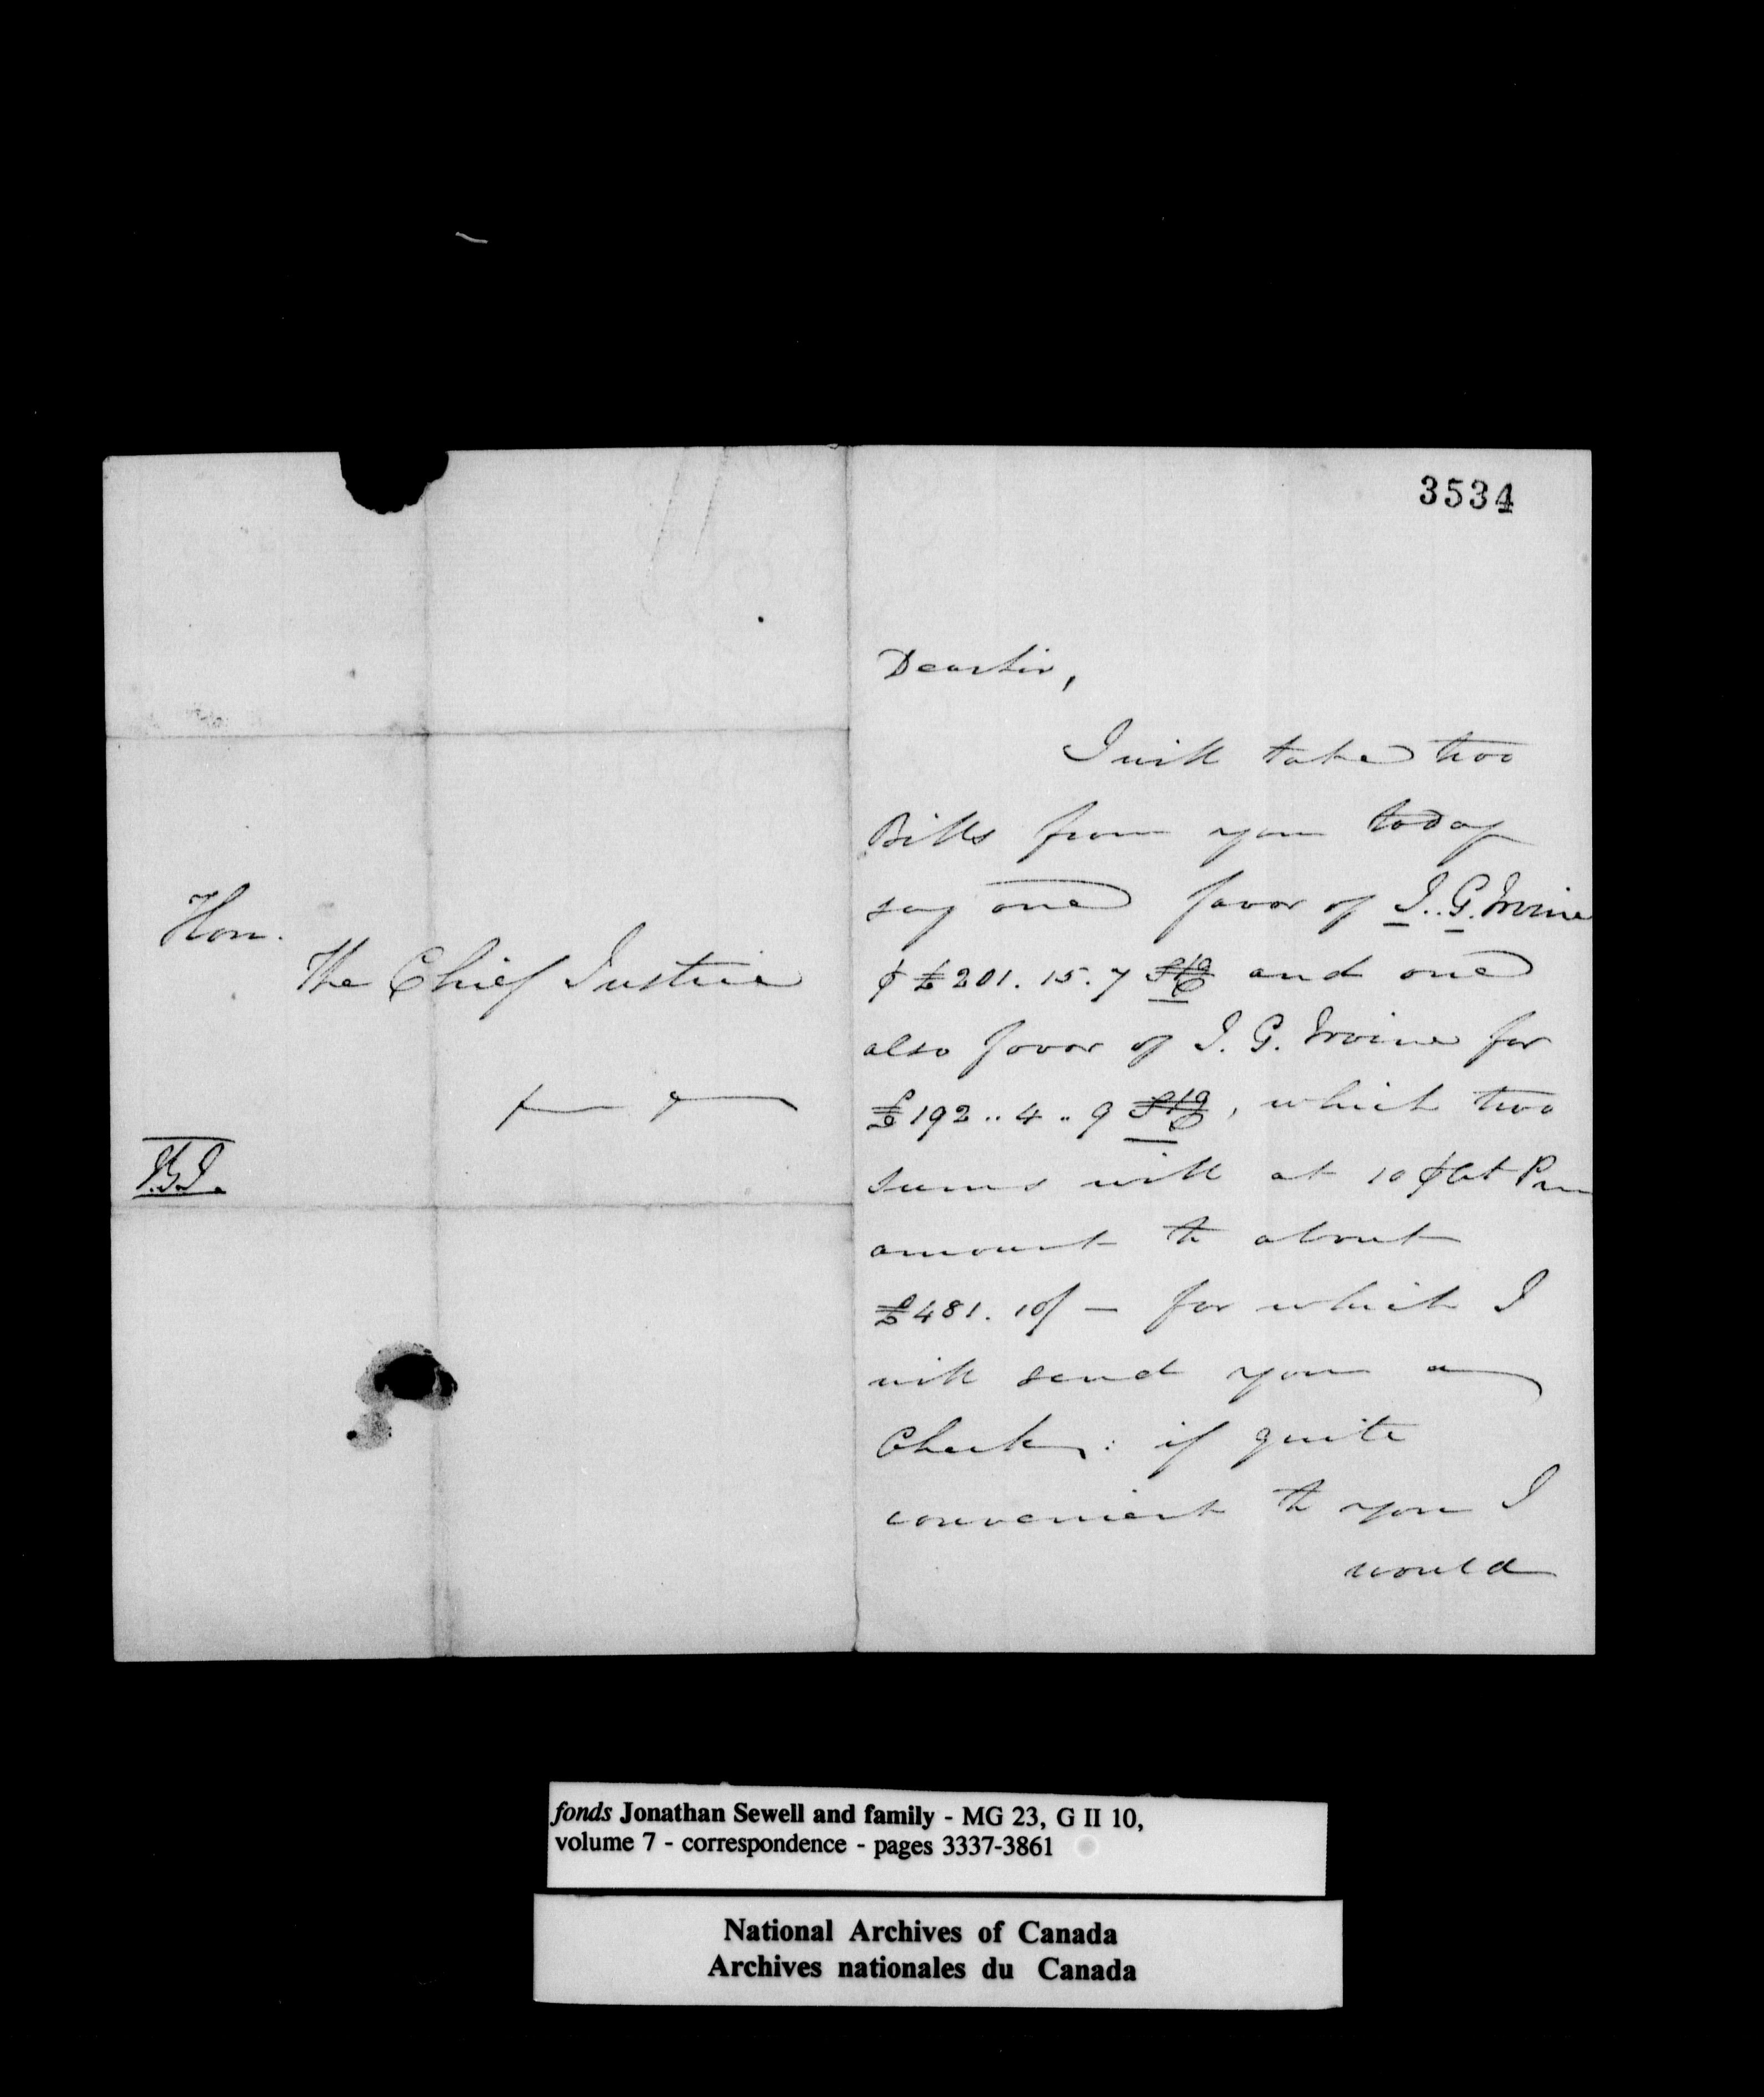 Hon.
The Chief Justice
3534
Dear Sir,
I will take two
Bills from you today
say one favor of J. G. Irvine
p £201. 15. 7 Stg and one
also favor of J. G. Irvine for
£192 .. 4 .. 9 Stg, which two
sums will at 10 p Ct Pm
amount to about
£481. 10/ — for which I
will send you a
Check: if quite
convenient to you I
would
fonds Jonathan Sewell and family - MG 23, G II 10,
volume 7 - correspondence - pages 3337-3861
National Archives of Canada
Archives nationales du Canada